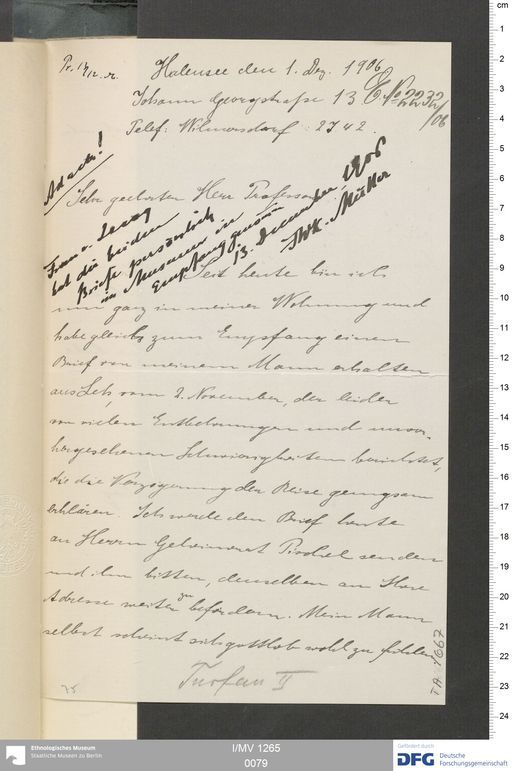 Pr. 13/12. 
Halensee den 1. Dez. 1906
Johann Georgstraße 13
E. No 2232/06
Telef: Wilmersdorf: 2742.
Ad acta!
Sehr geehrter Herr Professor
Frau v. Lecoq
hat die beiden
Briefe persönlich
im Museum in
Empfang genommen
13. December 1906
FWK. Müller
Seit heute bin ich
nun ganz in meiner Wohnung und
habe gleich zum Empfang einen
Brief von meinem Mann erhalten
aus Leh, vom 2. November, der leider
von vielen Entbehrungen und unvor-
hergesehenen Schwierigkeiten berichtet,
die die Verzögerung der Reise genugsam
erklären. Ich werde den Brief heute
an Herrn Geheimerat Pischel senden
und ihn bitten, denselben an Ihre
Adresse weiter zu befördern. Mein Mann
selbst scheint sich gottlob wohl zu fühlen
Turfan II
75
TA 1667
cm
1
2
3
4
5
6
7
8
9
10
11
12
13
14
15
16
17
18
19
20
21
22
23
24
Ethnologisches Museum
Staatliche Museen zu Berlin
I/MV 1265
0079
Gefördert durch
DFG Deutsche
Forschungsgemeinschaft